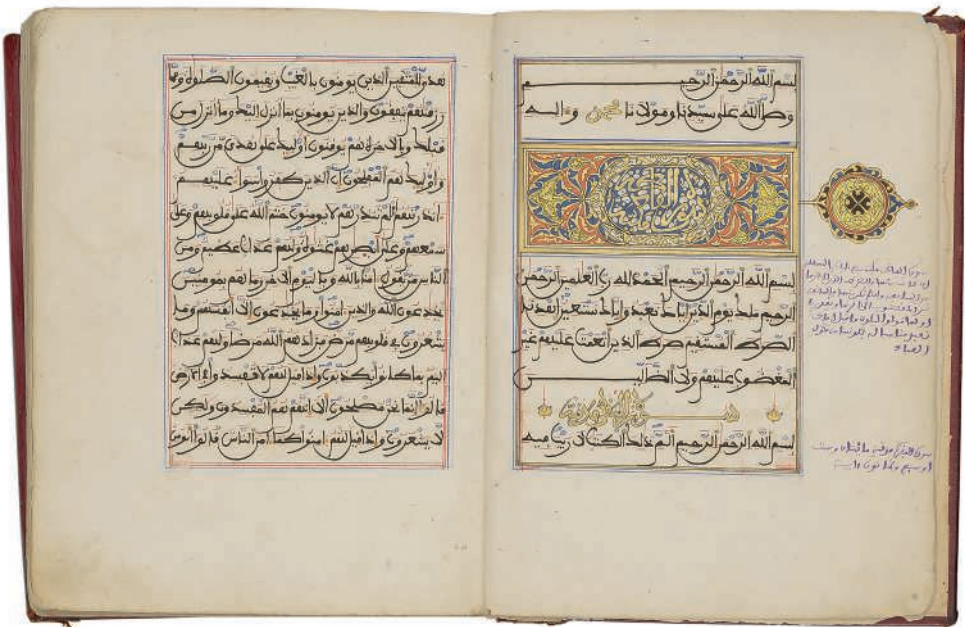 بسم الله الرحمن الرحيم
وصلى الله على سيدنا ومولانا محمد وءاله
بسم الله الرحمن الرحيم الحمد لله رب العلمين الرحمن
الرحيم ملك يوم الدين إياك نعبد وإياك نستعين اهدنا
الصرط المستقيم صرط الذين أنعمت عليهم غير
المغضوب عليهم ولا الضالين
بسم الله الرحمن الرحيم الم ذلك الكتاب لا ريب فيه
هدى للمتقين الذين يومنون بالغيب ويقيمون الصلوة ومما
رزقنهم ينفقون والذين يومنون بما أنزل إليك وما أنزل من
قبلك وبالاخرة هم يوقنون أوليك على هدى من ربهم
وأوليك هم المفلحون إن الذين كفروا سواء عليهم
ءانذرتهم أم لم تنذرهم لا يومنون ختم الله على قلوبهم وعلى
سمعهم وعلى أبصرهم غشوة ولهم عذاب عظيم ومن
الناس من يقول ءامنا بالله وباليوم الاخر وما هم بمومنين
يخدعون الله والذين ءامنوا وما يخدعون إلا أنفسهم وما
يشعرون في قلوبهم مرض فزادهم الله مرضا ولهم عذاب
أليم بما كانوا يكذبون وإذا قيل لهم لا تفسدوا في الارض
قالوا إنما نحن مصلحون ألا إنهم هم المفسدون ولكن
لا يشعرون وإذا قيل لهم ءامنوا كما ءامن الناس قالوا أنومن